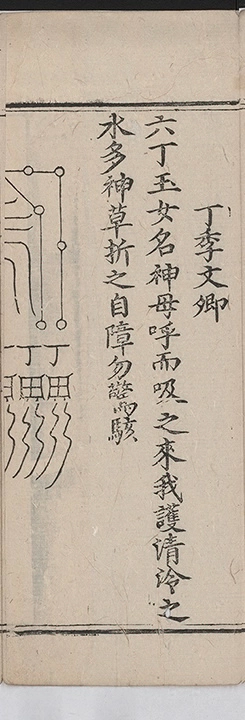 丁季文卿
六丁玉女名神母呼而吸之來我護清泠之
水多神草折之自障勿驚駭